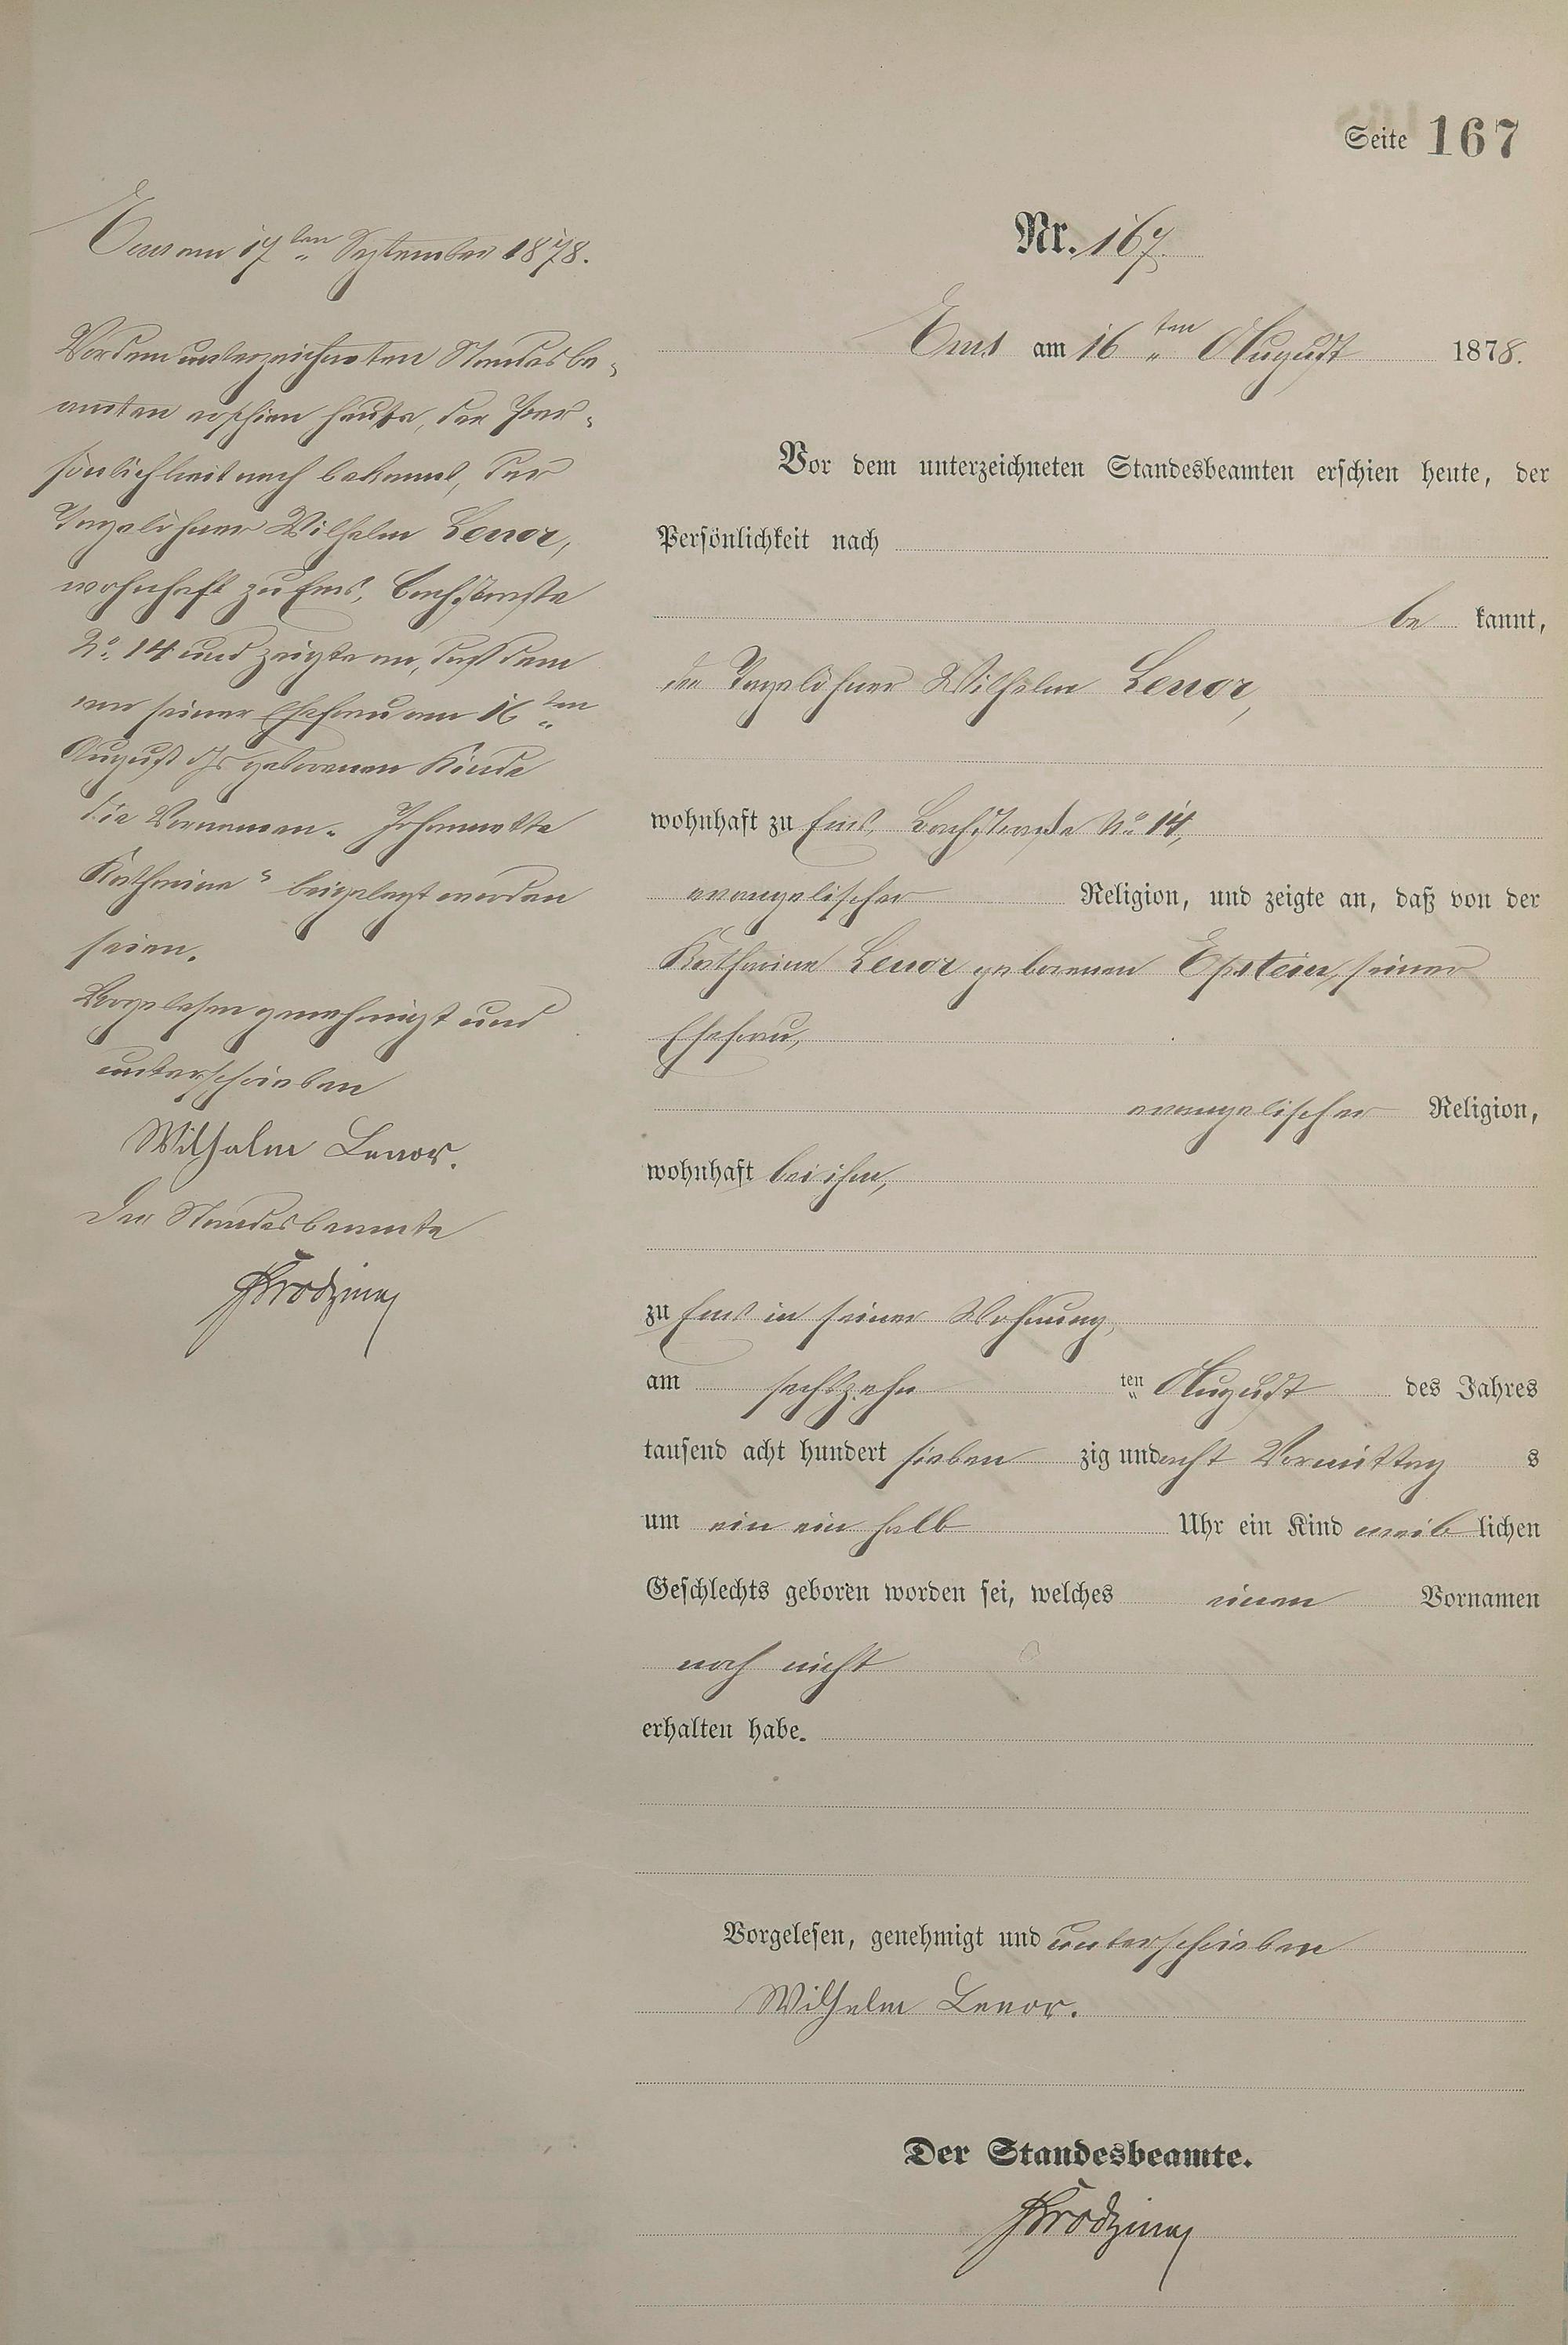 Seite 167
Ems am 17ten September 1878.
Vor dem unterzeichneten Standesbe-
amten erschien heute, der Per-
sönlichkeit nach bekannt, der
Tagelöhner Wilhelm Lenor,
wohnhaft zu Ems, Bachstraße
No. 14 und zeigte an, daß dem
von seiner Ehefrau am 16ten
August djs geborenen Kinde
die Vornamen „Johannette
Katharina“ beigelegt worden
seien.
Vorgelesen genehmigt und
unterschrieben
Wilhelm Lenor.
Der Standesbeamte
Nr. 167.
Ems am 16ten August 1878.
Vor dem unterzeichneten Standesbeamten erschien heute, der
Persönlichkeit nach
be kannt,
der Tagelöhner Wilhelm Lenor,
wohnhaft zu Ems, Bachstraße No. 14,
evangelischer Religion, und zeigte an, daß von der
Katharina Lenor geborenen Epstein, seiner
Ehefrau,
evangelischer Religion,
wohnhaft bei ihm,
zu Ems in seiner Wohnung,
am sechszehn ten August des Jahres
tausend acht hundert sieben zig und acht Vormittag s
um ein ein halb Uhr ein Kind weib lichen
Geschlechts geboren worden sei, welches einen Vornamen
noch nicht
erhalten habe.
Vorgelesen, genehmigt und unterschrieben
Wilhelm Lenor.
Der Standesbeamte.